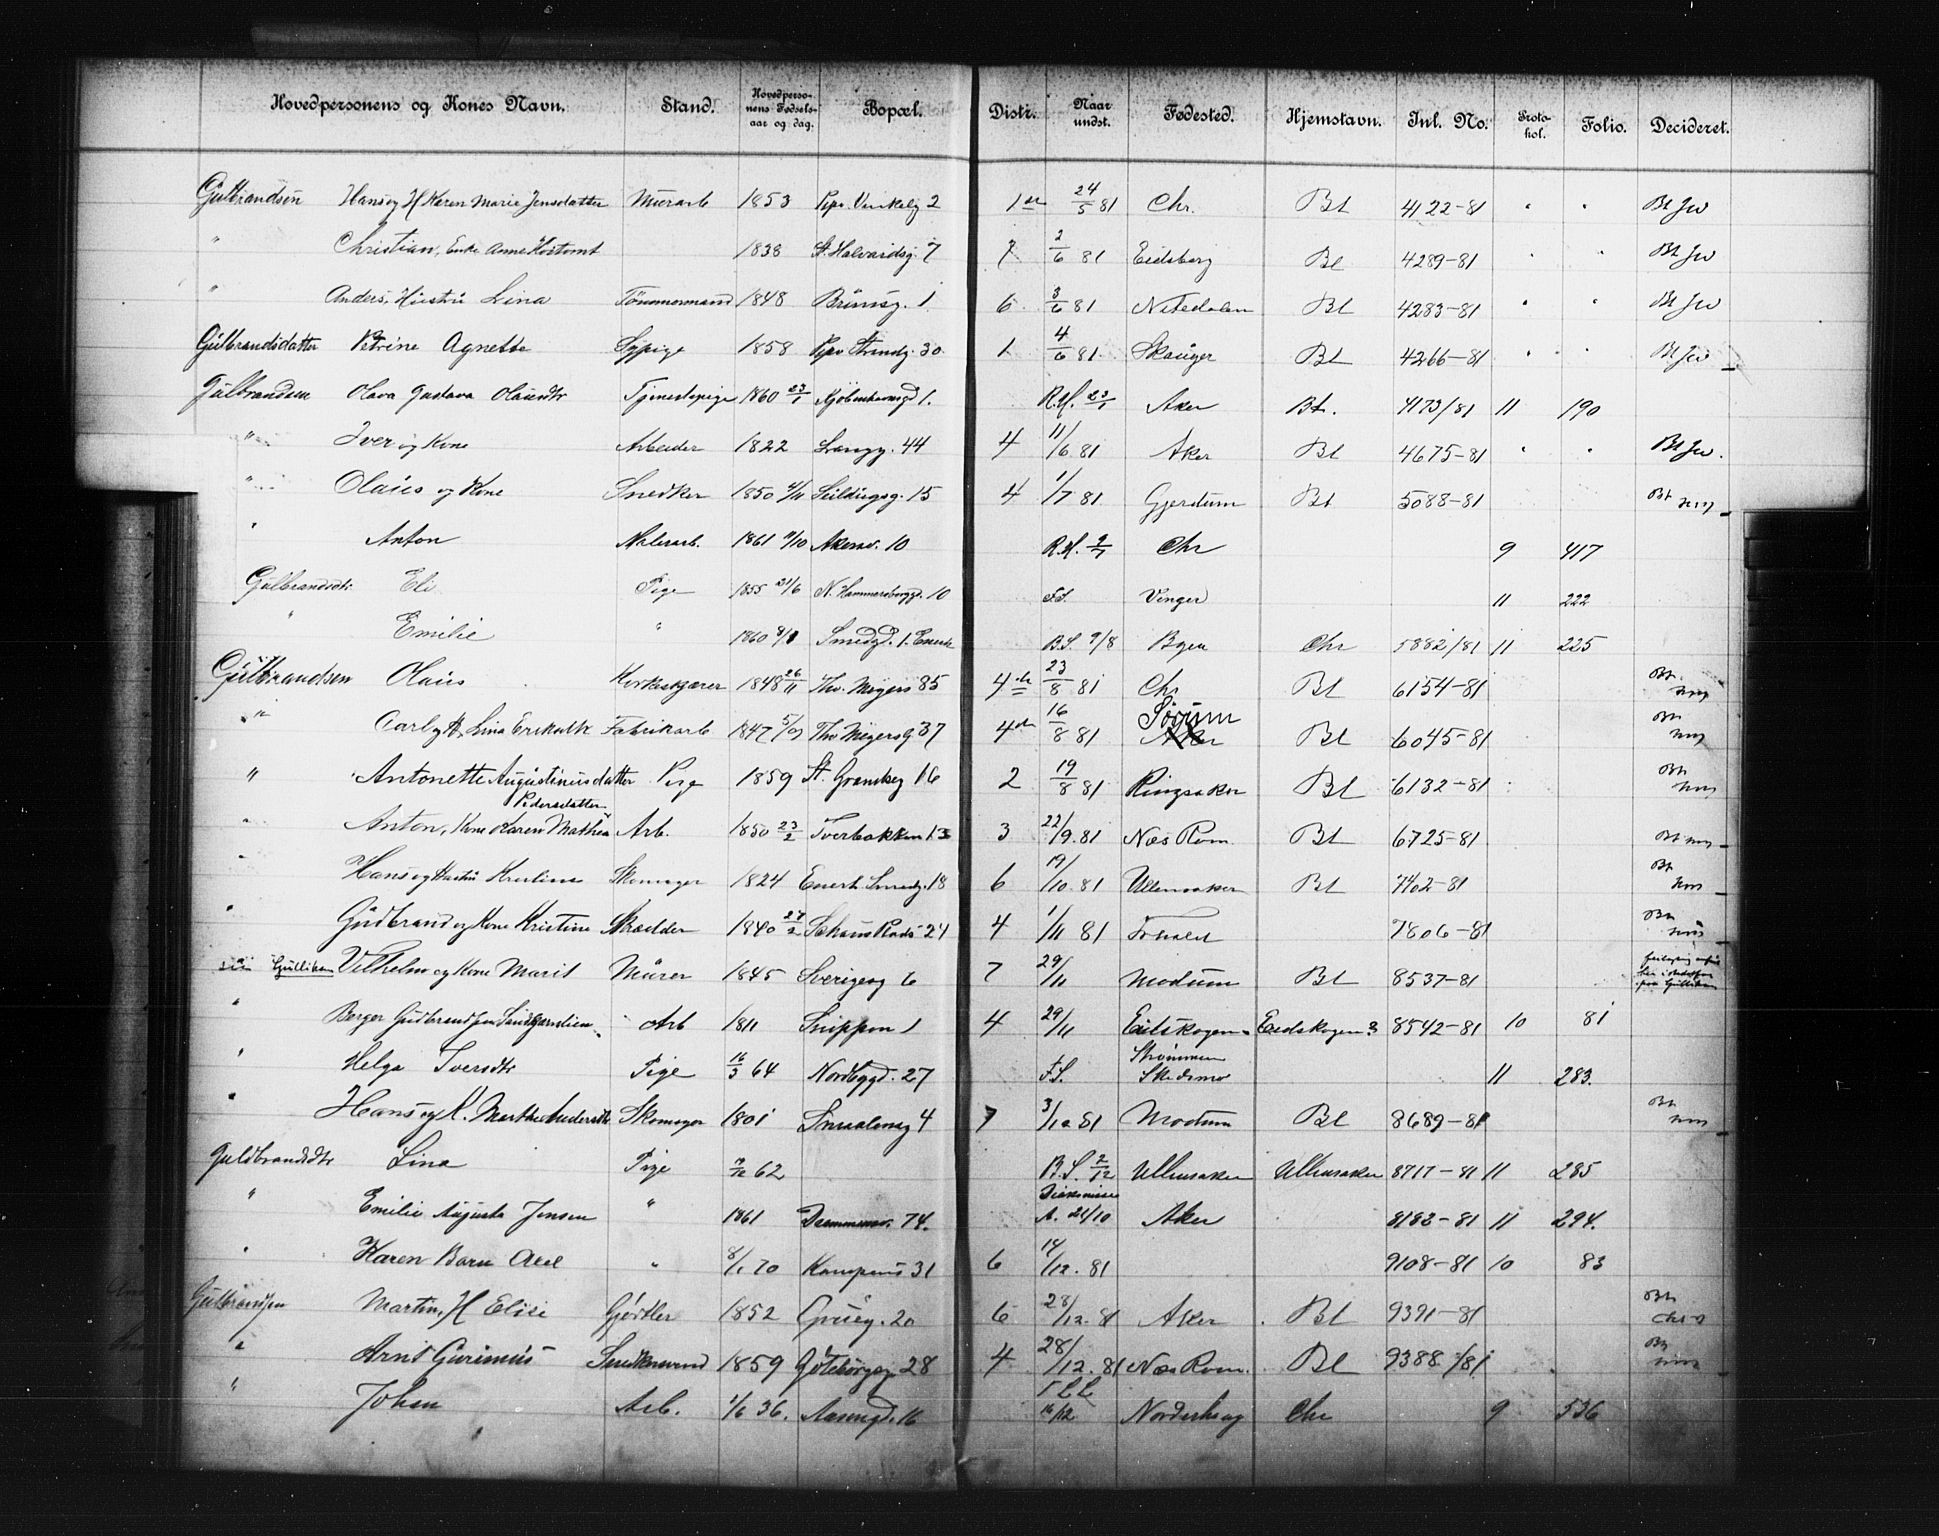 Hovedpersonens og Kones Navn. Stand. Hovedpersonens Fødselsaar og dag. Bopæl. Distr. Naar undst. Fødested. Hjemstavn. Inl. No. Protokol. Folio. Decideret.
Gulbrandsen Hans og H Karen Marie Jensdatter Murarb 1853 2 1 24/5 81 Chr. Bt 4122-81 Bt
" Christian, Enke Anne 1838 St. Halvardsg. 7 7 2/6 81 Eidsberg Bt 4289-81 Bt
" Anders, Hustru Lina Tömmermand 1848 1 6 3/6 81 Nitedalen Bt 4283-81 Bt
Gulbrandsdatter Petrine Agnette Sypige 1858 Strandg. 30 1 4/6 81 Skauger Bt 4266-81 Bt
Gulbrandsen Olava Gustava Olausdtr Tjenestepige 1860 23/1 Kjöbenhavnsgd 1. R.H. 23/1 Aker Bt. 4173/81 11 190
" Iver og Kone Arbeider 1822 Langg. 44 4 11/6 81 Aker Bt 4675-81 Bt
" Olaus og Kone Snedker 1850 15 4 1/7 81 Gjerdrum Bt 5088-81 Bt
" Anton Malerarb. 1861 11/10 Akersv. 10 R.H. 2/7 Chr 9 417
Gulbrandsdtr. Eli Pige 1855 21/6 N. Hammersborggd. 10 F.S. Vinger 11 222
" Emilie " 1860 8/1 Smedgd. 1. Enerh B.S. 9/8 Bgen Chr 5882/81 11 225
Gulbrandsen Olaus Korkeskjærer 1848 26/11 Thv. Meyers 85 4 23/8 81 Chr Bt 6154-81 Bt
" Carl og H, Lina Eriksdtr Fabrikarb 1847 Thv Meyersg 37 4 16/8 81 Sörum Aker Bt 6045-81 Bt
" Antonette Augustinusdatter Pige 1859 St. Gransheg 16 2 19/8 81 Ringsaker Bt 6132-81 Bt
Pedersdatter
" Anton, Kone Karen Mathea Arb. 1850 23/2 Tverbakken 13 3 22/9. 81 Næs Rom. Bt 6725-81 Bt
" Hans og Hustru Skomager 1824 Enerh. Smedg. 18 6 19/10. 81 Ullensaker Bt 7402-81 Bt
" Gudbrand og Kone Kristine Skrædder 1840 27/2 Schous Plads 24 4 1/11 81 7806-81 Bt
Gulliksen Vilhelm og Kone Marit Murer 1845 Sverigesg 6 7 29/11 Modum Bt 8537-81
" Berger Gudbrandsen Arb 1811 Snippen 1 4 29/11 Eidskogen Eidskogen? 8542-81 10 81
" Helga Iversdtr Pige 16/3 64 Nordbygd. 27 F.S. Strømmen Skedsmo 11 283.
" Hans og K. Marthe Andersdtr Skomager 1801 Smaalensg 4 7 3/12 81 Modum Bt 8689-81 Bt
Guldbrandsdtr Lina Pige 62 B.S. 2/12 Ullensaker Ullensaker 8717-81 11 285
" Emilie Augusta Jensen " 1861 Drammensv. 74. A. 21/10 Aker 8182-81 11 294.
" Karen Barn Axel " 8/1 70 Kampens 31 6 14/12. 81 9108-81 10 83
Gulbrandsen Martin, H Elise Gjørtler 1852 Grüeg. 20 6 28/12. 81 Aker Bt 9391-81 Bt
" Arnt Gurinius Snedkersvend 1859 Göteborgsg. 28 4 28/12. 81 Næs Rom. Bt 9388/81 Bt
" Johan Arb. 1/6 36. Aasengd. 16 16/12 Norderhoug Chr 9 536